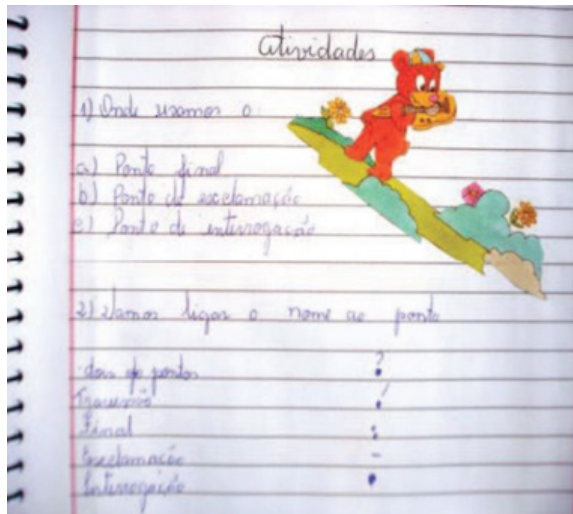 atividades
1) Onde usamos o:
a) Ponto final
b) Ponto de exclamação
c) Ponto de interrogação
2) Vamos ligar o nome ao ponto
dois pontos ?
Travessão !
Final :
Exclamação -
Interrogação .